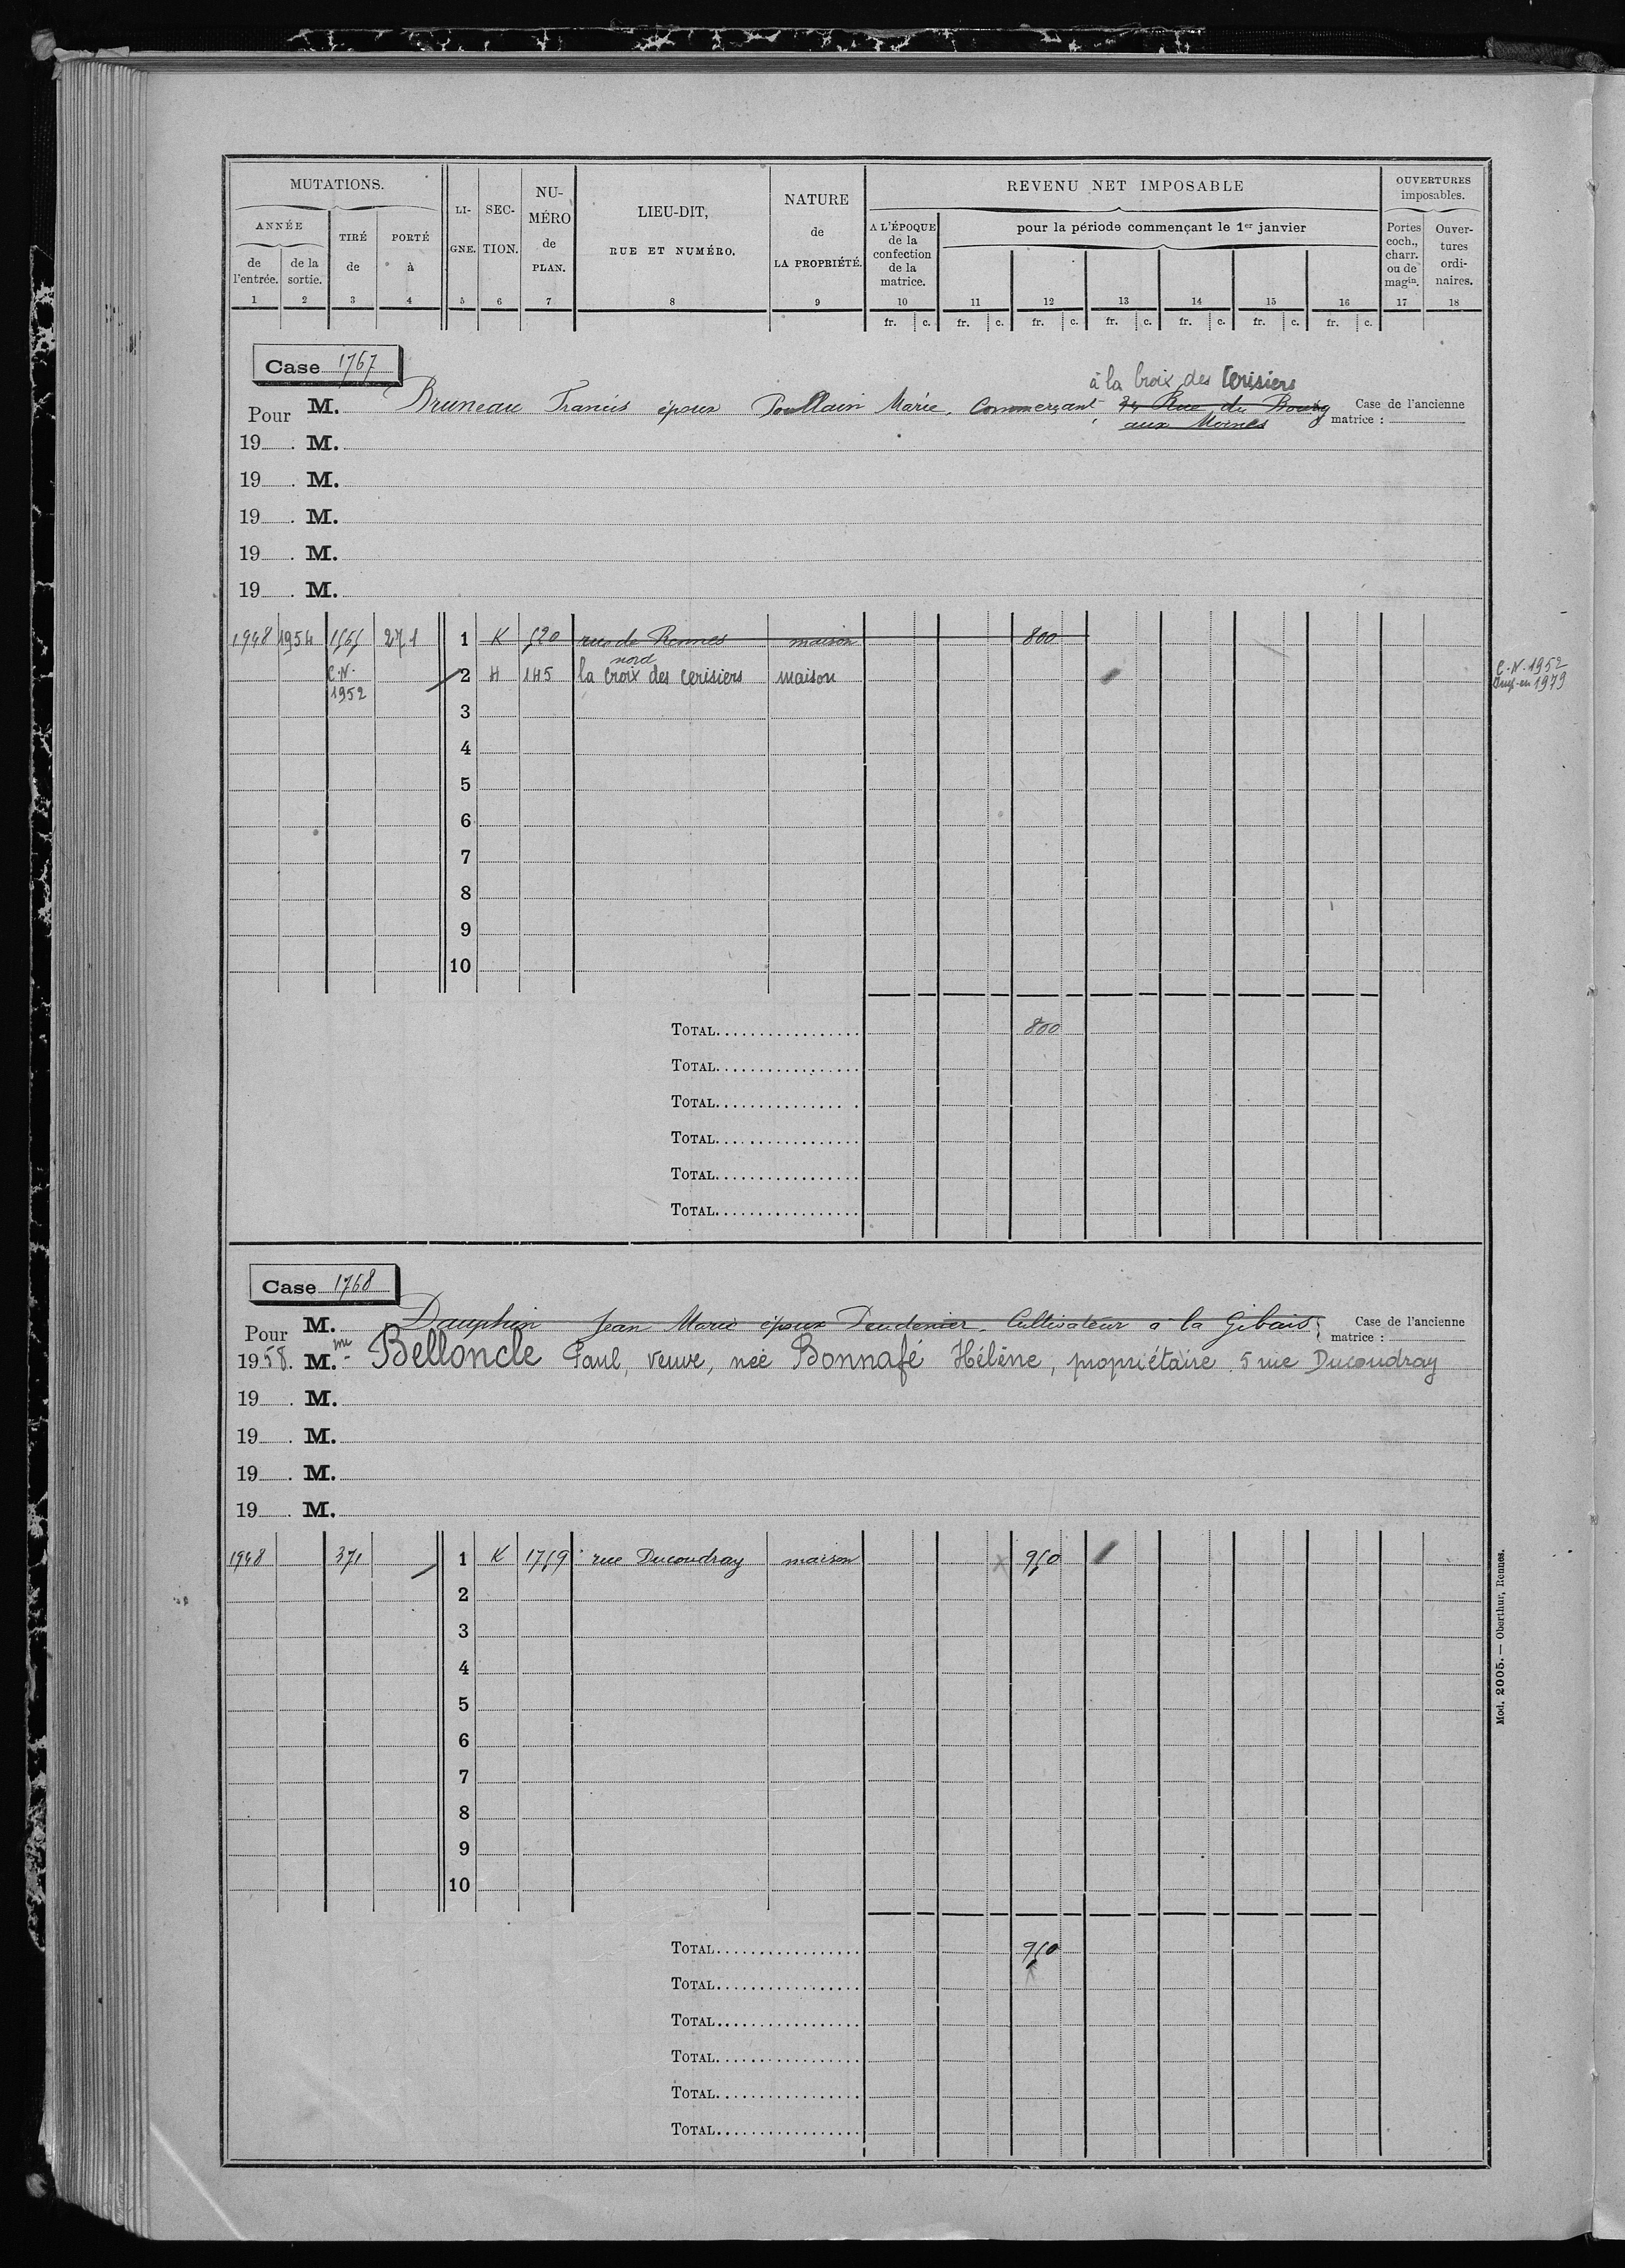 MUTATIONS.
ANNÉE
de l'entrée.
de la sortie.
TIRÉ de
PORTÉ à
LIGNE.
SECTION.
NUMÉRO de PLAN.
LIEU-DIT,
RUE ET NUMÉRO.
NATURE de LA PROPRIÉTÉ.
REVENU NET IMPOSABLE
A L'ÉPOQUE de la confection de la matrice.
pour la période commençant le 1er janvier
OUVERTURES imposables.
Portes coch., charr. ou de magin.
Ouvertures ordinaires.
1 2 3 4 5 6 7 8 9 10 11 12 13 14 15 16 17 18
fr. c. fr. c. fr. c. fr. c. fr. c. fr. c. fr. c.
Case 1767
à la Croix des Cerisiers
Pour M. Bruneau Francis époux Poullain Marie, Commerçant Rue du Bourg
aux Moines
Case de l'ancienne matrice :
19 . M.
19 . M.
19 . M.
19 . M.
19 . M.
1948 1954 1565 271 1 K 520 rue de Rennes maison 800
C.N. 1952 2 H 145 la croix des cerisiers nord maison
C.N. 1952
en 1979
3
4
5
6
7
8
9
10
TOTAL. 800
TOTAL.
TOTAL.
TOTAL.
TOTAL.
TOTAL.
Case 1768
Pour M. Dauphin Jean Marie époux Cultivateur à la Gibais
Case de l'ancienne matrice :
1958. M.me Belloncle Paul, veuve, née Bonnafé Hélène, propriétaire 5 rue Ducoudray
19 . M.
19 . M.
19 . M.
19 . M.
1948 371 1 K 1759 rue Ducoudray maison 950
2
3
4
5
6
7
8
9
10
TOTAL. 950
TOTAL.
TOTAL.
TOTAL.
TOTAL.
TOTAL.
Mod. 2005. — Oberthur, Rennes.